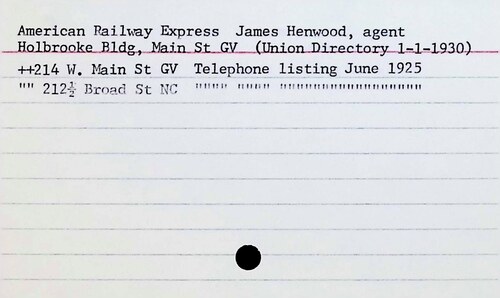 American Railway Express  James Henwood, agent
Holbrooke Bldg, Main St GV  (Union Directory 1-1-1930)
++214 W. Main St GV  Telephone listing June 1925
"" 212½ Broad St NC  """" """" """""""""""""""""